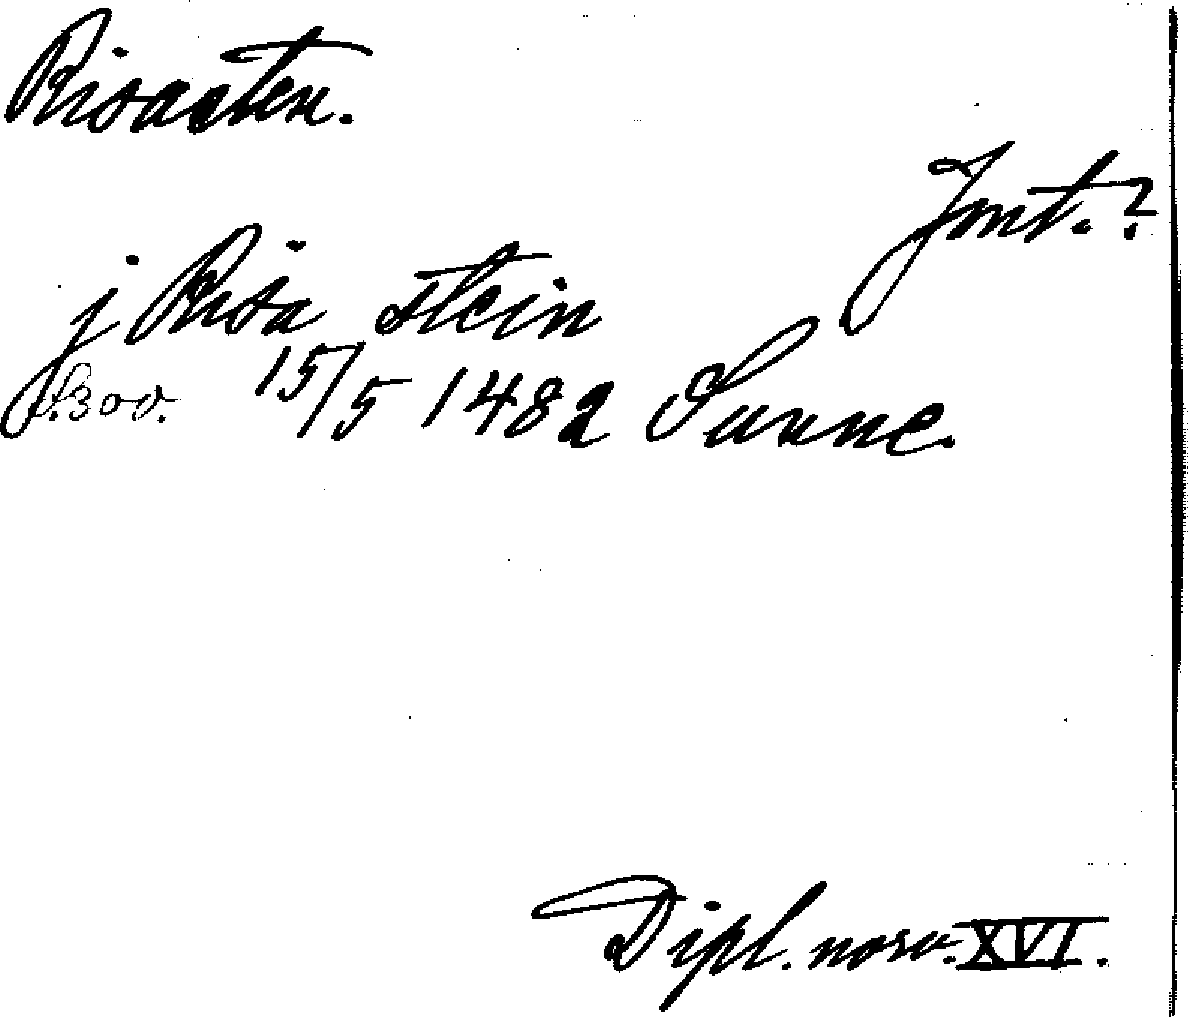 Risasten.
Jmt.?
j Risa stein
s. 300. 15/5 1482 Sunne.
Dipl. norv. XVI.